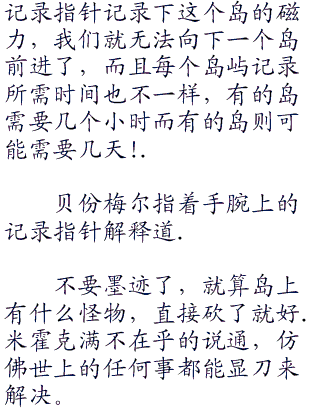 记录指针记录下这个岛的磁
力，我们就无法向下一个岛
前进了，而且每个岛屿记录
所需时间也不一样，有的岛
需要几个小时而有的岛则可
能需要几天!.
贝份梅尔指着手腕上的
记录指针解释道.
不要墨迹了，就算岛上
有什么怪物，直接砍了就好.
米霍克满不在乎的说通，仿
佛世上的任何事都能显刀来
解决。